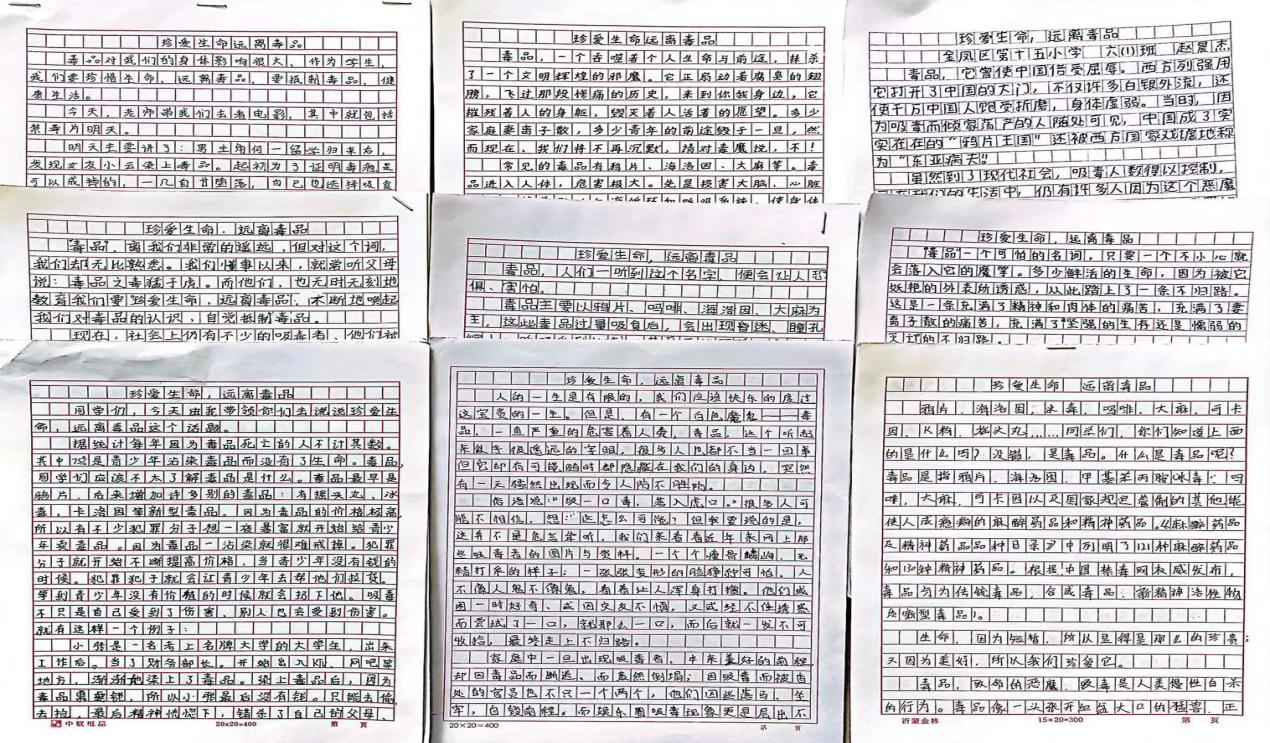 珍爱生命远离毒品
毒品对我们的身体影响很大、作为学生,
我们要珍惜生命,远离毒品,要抵制毒品,健
康生活。
今天,老师带我们去看电影,其中就包括
禁毒片明天。
明天主要讲了:男生
发现女友小云染上毒品。起初为了证明毒瘾是
可以戒掉的,
珍爱生命远离毒品
毒品,一个吞噬着个人生命与前途,抹杀
了一个文明辉煌的邪魔。它正扇动着腐臭的翅
膀,飞过那段惨痛的历史,来到你我身边,它
摧残着人的身躯,毁灭着人活着的愿望。多少
家庭妻离子散,多少青年的前途毁于一旦,然
而现在,我们将不再沉默,请对毒魔说,不!
常见的毒品有鸦片、海洛因、大麻等。毒
品进入人体,危害极大。先是损害大脑、心脏
珍爱生命,远离毒品
金凤区第十五小学 六(1)班 赵晨杰
毒品,它曾使中国倍受屈辱。西方列强用
它打开了中国的大门,不仅许多白银外流,还
使千万中国人饱受折磨,身体虚弱。当时,因
为吸毒而倾家荡产的人随处可见,中国成了实
实在在的“鸦片王国”还被西方国家戏谑地称
为“东亚病夫”。
虽然到了现代社会,吸毒人数得以控制,
我们的生活中,仍有许多人因为这个恶魔
珍爱生命,远离毒品
“毒品”,离我们非常的遥远,但对这个词,
我们却无比熟悉。我们懂事以来,就常听父母
说:毒品之毒猛于虎。而他们,也无时无刻地
教育我们要珍爱生命,远离毒品,不断地唤起
我们对毒品的认识,自觉抵制毒品。
现在,社会上仍有不少的吸毒者、他们被
珍爱生命,远离毒品
毒品,人们一听到这个名字,便会让人恐
惧、害怕。
毒品主要以鸦片、吗啡、海洛因、大麻为
主,这此毒品过量吸食后,会出现昏迷、瞳孔
珍爱生命,远离毒品
“毒品”一个可怕的名词,只要一个不小心就
会落入它的魔掌。多少鲜活的生命,因为被它
妖艳的外表所诱惑,从此踏上了一条不归路。
这是一条充满了精神和肉体的痛苦,充满了妻
离子散的痛苦,充满了坚强的生存还是懦弱的
灭亡的不归路。
珍爱生命,远离毒品
同学们,今天由我带领你们去说说珍爱生
命,远离毒品这个话题。
据统计每年因为毒品死亡的人不计其数。
其中 是青少年沾染毒品而没有了生命。毒品,
同学们应该不太了解毒品是什么。毒品最早是
鸦片,后来增加许多别的毒品:有摇头丸、冰
毒,卡洛因等新型毒品。因为毒品的价格极高,
所以有不少犯罪分子想一夜暴富就开始给青少
年卖毒品。因为毒品一沾染就很难戒掉。犯罪
分子就开始不断提高价格,当青少年没有钱的
时候。犯罪犯子就会让青少年去帮他们拉货。
等到青少年没有价值的时候就会扔下他。吸毒
不只是自己受到了伤害,别人也会受到伤害。
就有这样一个例子:
小 是一名考上名牌大学的大学生,出来
工作后。当了财务部长。开始出入KTV、网吧等
地方,渐渐地染上了毒品。染上毒品后,因为
毒品需要钱,所以小 最后没有钱。只能去偷
去抢,最后精神恍惚下,错杀了自己的父母、
中联纸品 20×20=400 第 页
珍爱生命,远离毒品
人的一生是有限的,我们应该快乐的度过
这宝贵的一生。但是,有一个白色魔鬼——毒
品,一直严重的危害着人类,毒品,这个听起
来似乎很遥远的字眼,很多人也都不当一回事
但它却有可能随时都隐藏在我们的身边,突然
有一天猛然出现而令人防不胜防。
俗话说:“吸一口毒,落入虎口。”很多人可
能不相信,想:“这怎么可能?”但我要说的是,
这并不是危言耸听,我们来看看近年来网上那
些吸毒者的图片与资料。一个个瘦骨嶙峋、无
精打采的样子;一张张变形的脸狰狞可怕,人
不像人鬼不像鬼,看着让人浑身打撒。他们或
因一时好奇、或因交友不慎,又或经不住诱惑
而尝试了一口,就那么一口,而后就一发不可
收拾,最终走上不归路。
家庭中一旦出现吸毒者,本来美好的前程
却因毒品而断送。而轰然倒塌;因吸毒而被查
处的官员也不只一个两个,他们因此落马、坐
牢,自毁前程。而娱乐圈吸毒现象更是层出不
20×20=400 第 页
珍爱生命 远离毒品
鸦片,海洛因,冰毒,吗啡,大麻,可卡
因、K粉,摇头丸......同学们,你们知道上面
的是什么吗?没错,是毒品。什么是毒品呢?
毒品是指鸦片,海洛因,甲基苯丙胺(冰毒),吗
啡,大麻,可卡因以及国家规定管制的其他能
使人成瘾癖的麻醉药品和精神药品。《麻醉药品
及精神药品品种目录》中列明了121种麻醉药品
和130种精神药品。根据中国禁毒网权威发布,
毒品分为传统毒品,合成毒品,新精神活性物
质(新型毒品)。
生命,因为短暂,所以显得是那么的珍贵;
又因为美好,所以我们珍爱它。
毒品,致命的恶魔,吸毒是人类慢性自杀
的行为。毒品像一头张开血盆大口的猛兽,正
沂蒙金林 15×20=300 第 页